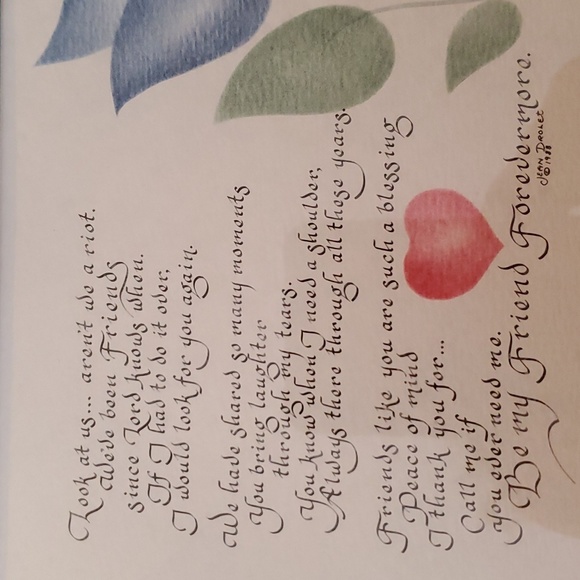 Look at us... aren't we a riot.
We've been Friends
since Lord knows when.
If I had to do it over,
I would look for you again.
We have shared so many moments
You bring laughter
through my tears.
You know when I need a shoulder,
Always there through all these years.
Friends like you are such a blessing
Peace of mind
I thank you for...
Call me if
you ever need me.
Be my Friend Forevermore.
JEAN DROLET
©1981